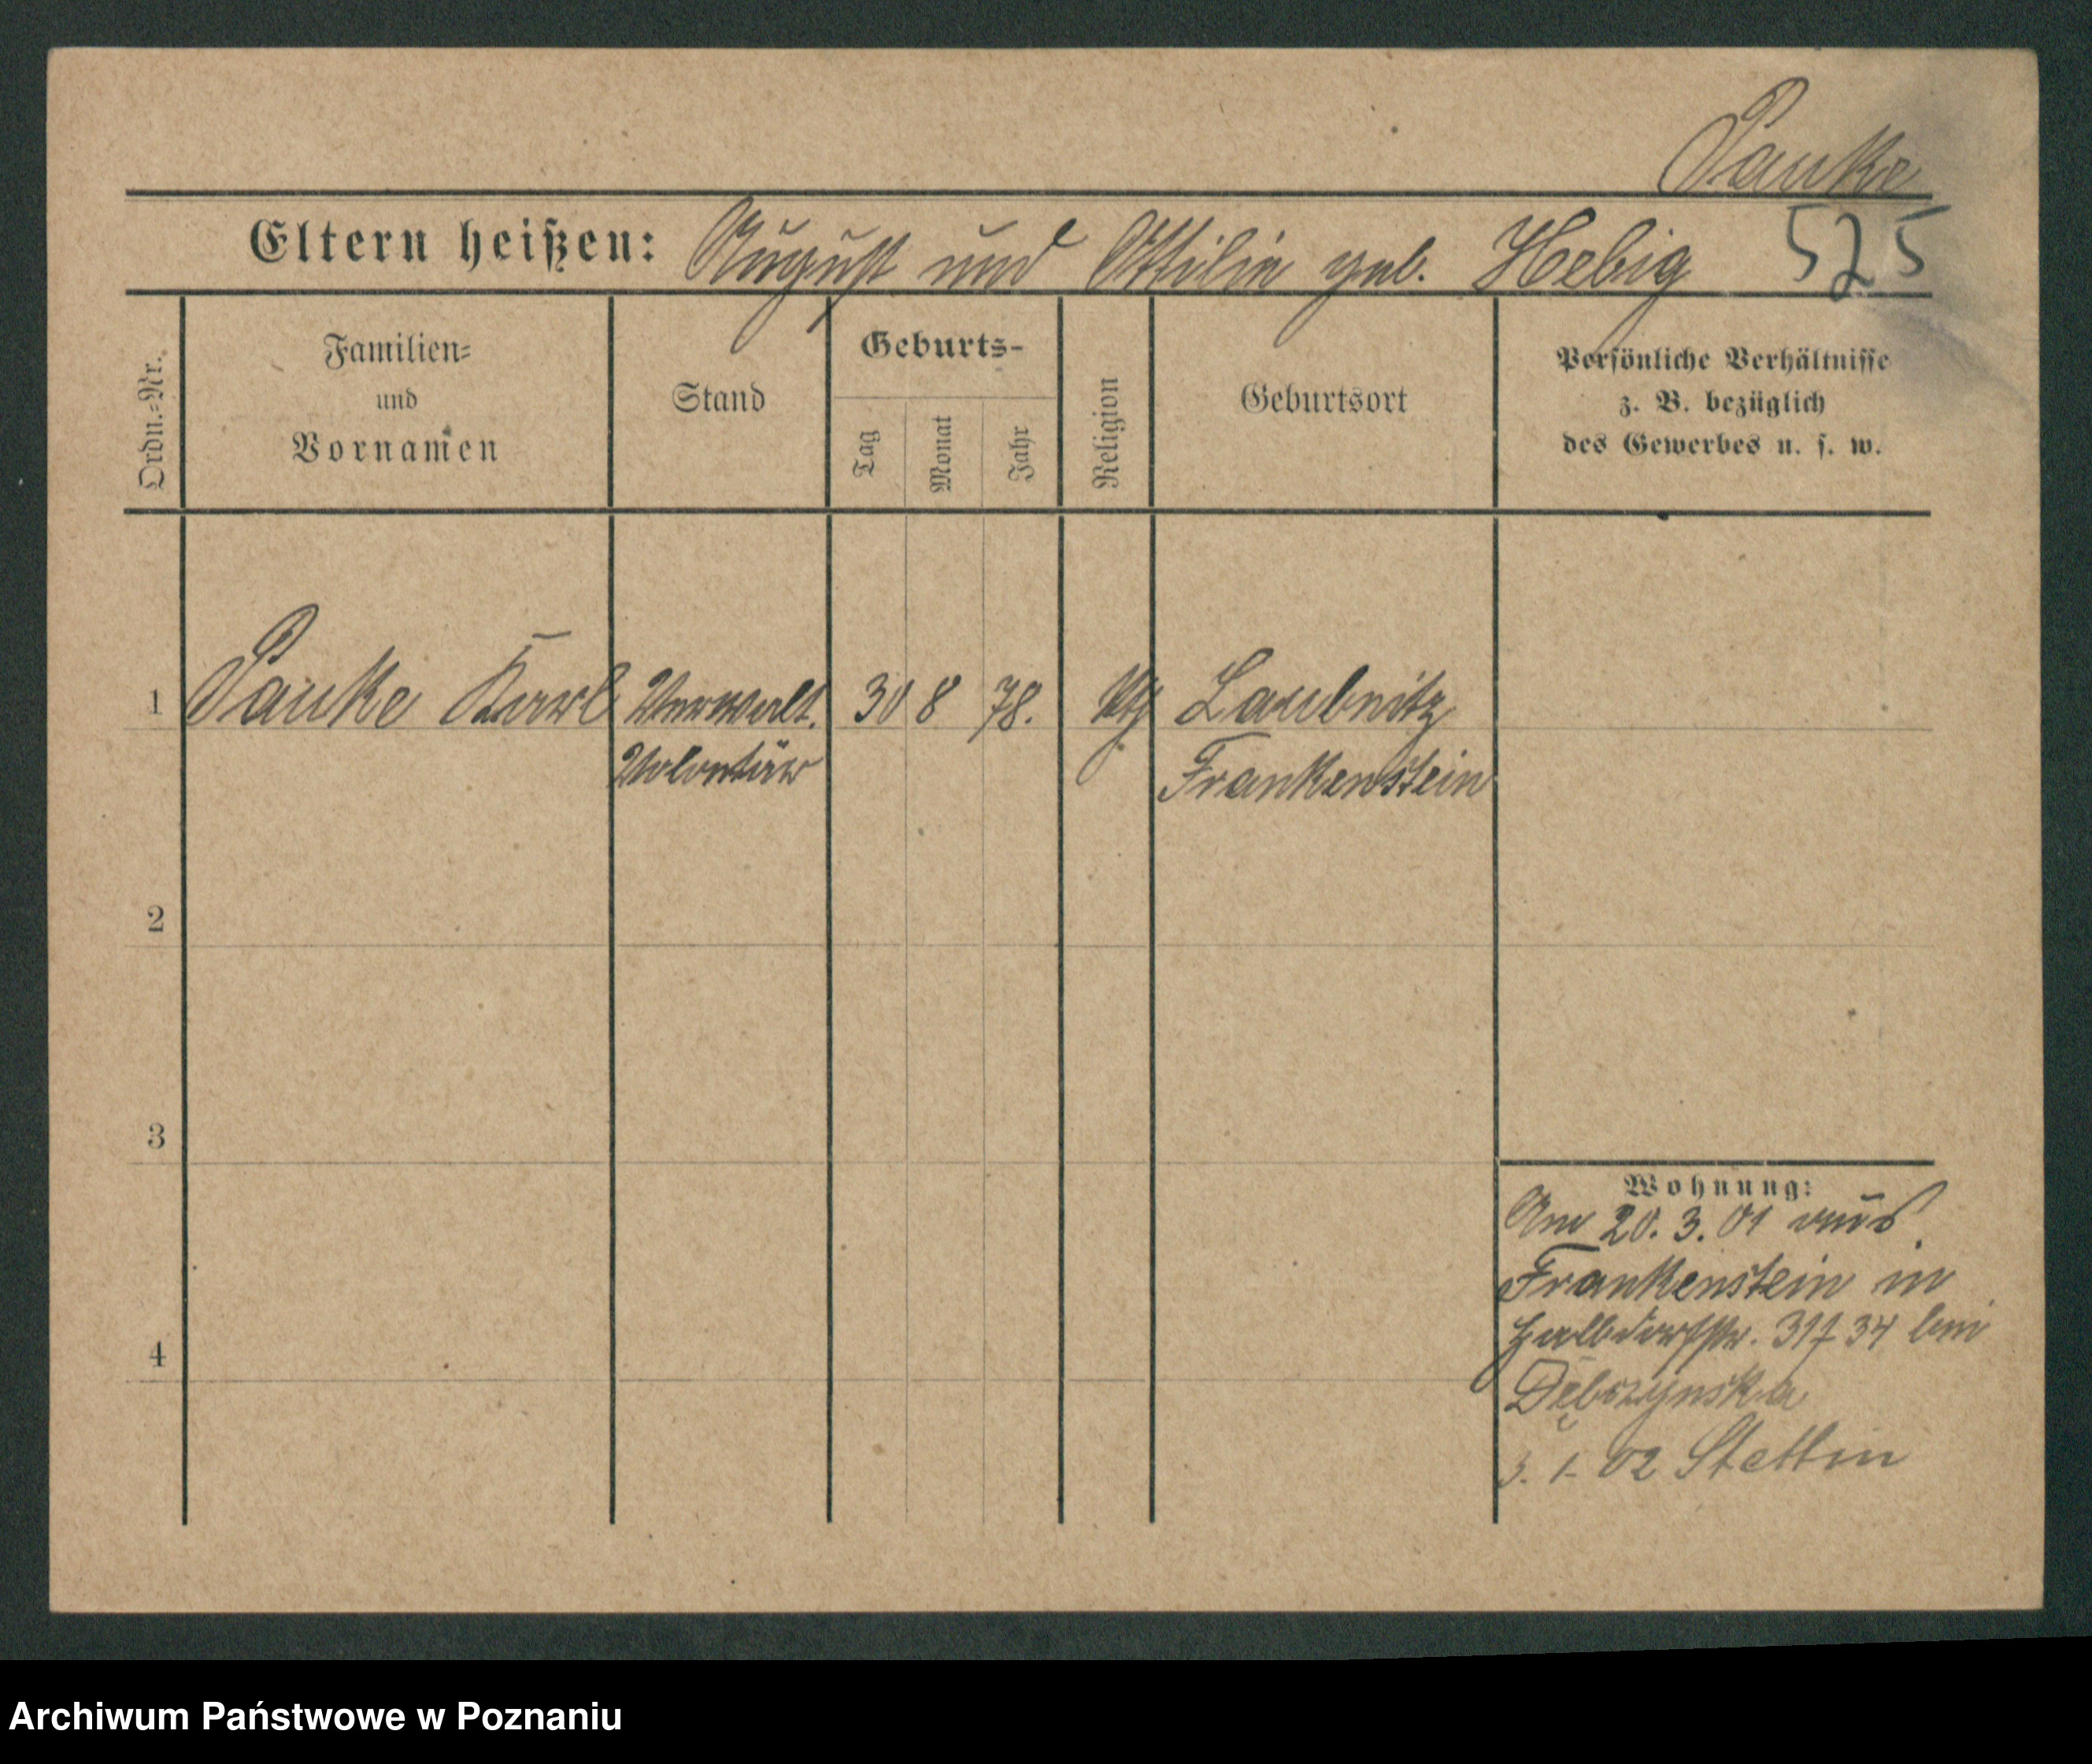 Pauke
Eltern heißen: August und Ottilie geb. Hebig 525
Ordn.=Nr.
Familien=
und
Vornamen
Stand
Geburts-
Tag
Monat
Jahr
Religion
Geburtsort
Persönliche Verhältnisse
z. B. bezüglich
des Gewerbes u. s. w.
1 Pauke Karl Verwalt. 30 8 78. Laubnitz
Volontär Frankenstein
2
3
4
Wohnung:
Am 20. 3. 01 aus
Frankenstein in
Halbdorfstr. 31 34 bei
Dębczynska
3. 1. 02 Stettin
Archiwum Państwowe w Poznaniu